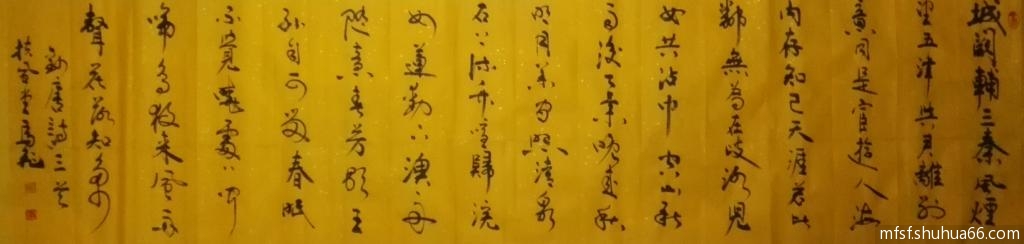 城闕輔三秦風煙
望五津與君離別
意同是宦遊人海
内存知己天涯若比
鄰無為在歧路兒
女共沾巾空山新
雨後天氣晚來秋
明月松間照清泉
石上流竹喧歸浣
女蓮動下漁舟
隨意春芳歇王
孫自可留春眠
不覺曉處處聞
啼鳥夜來風雨
聲花落知多少
唐詩三首
mfsf.shuhua66.com